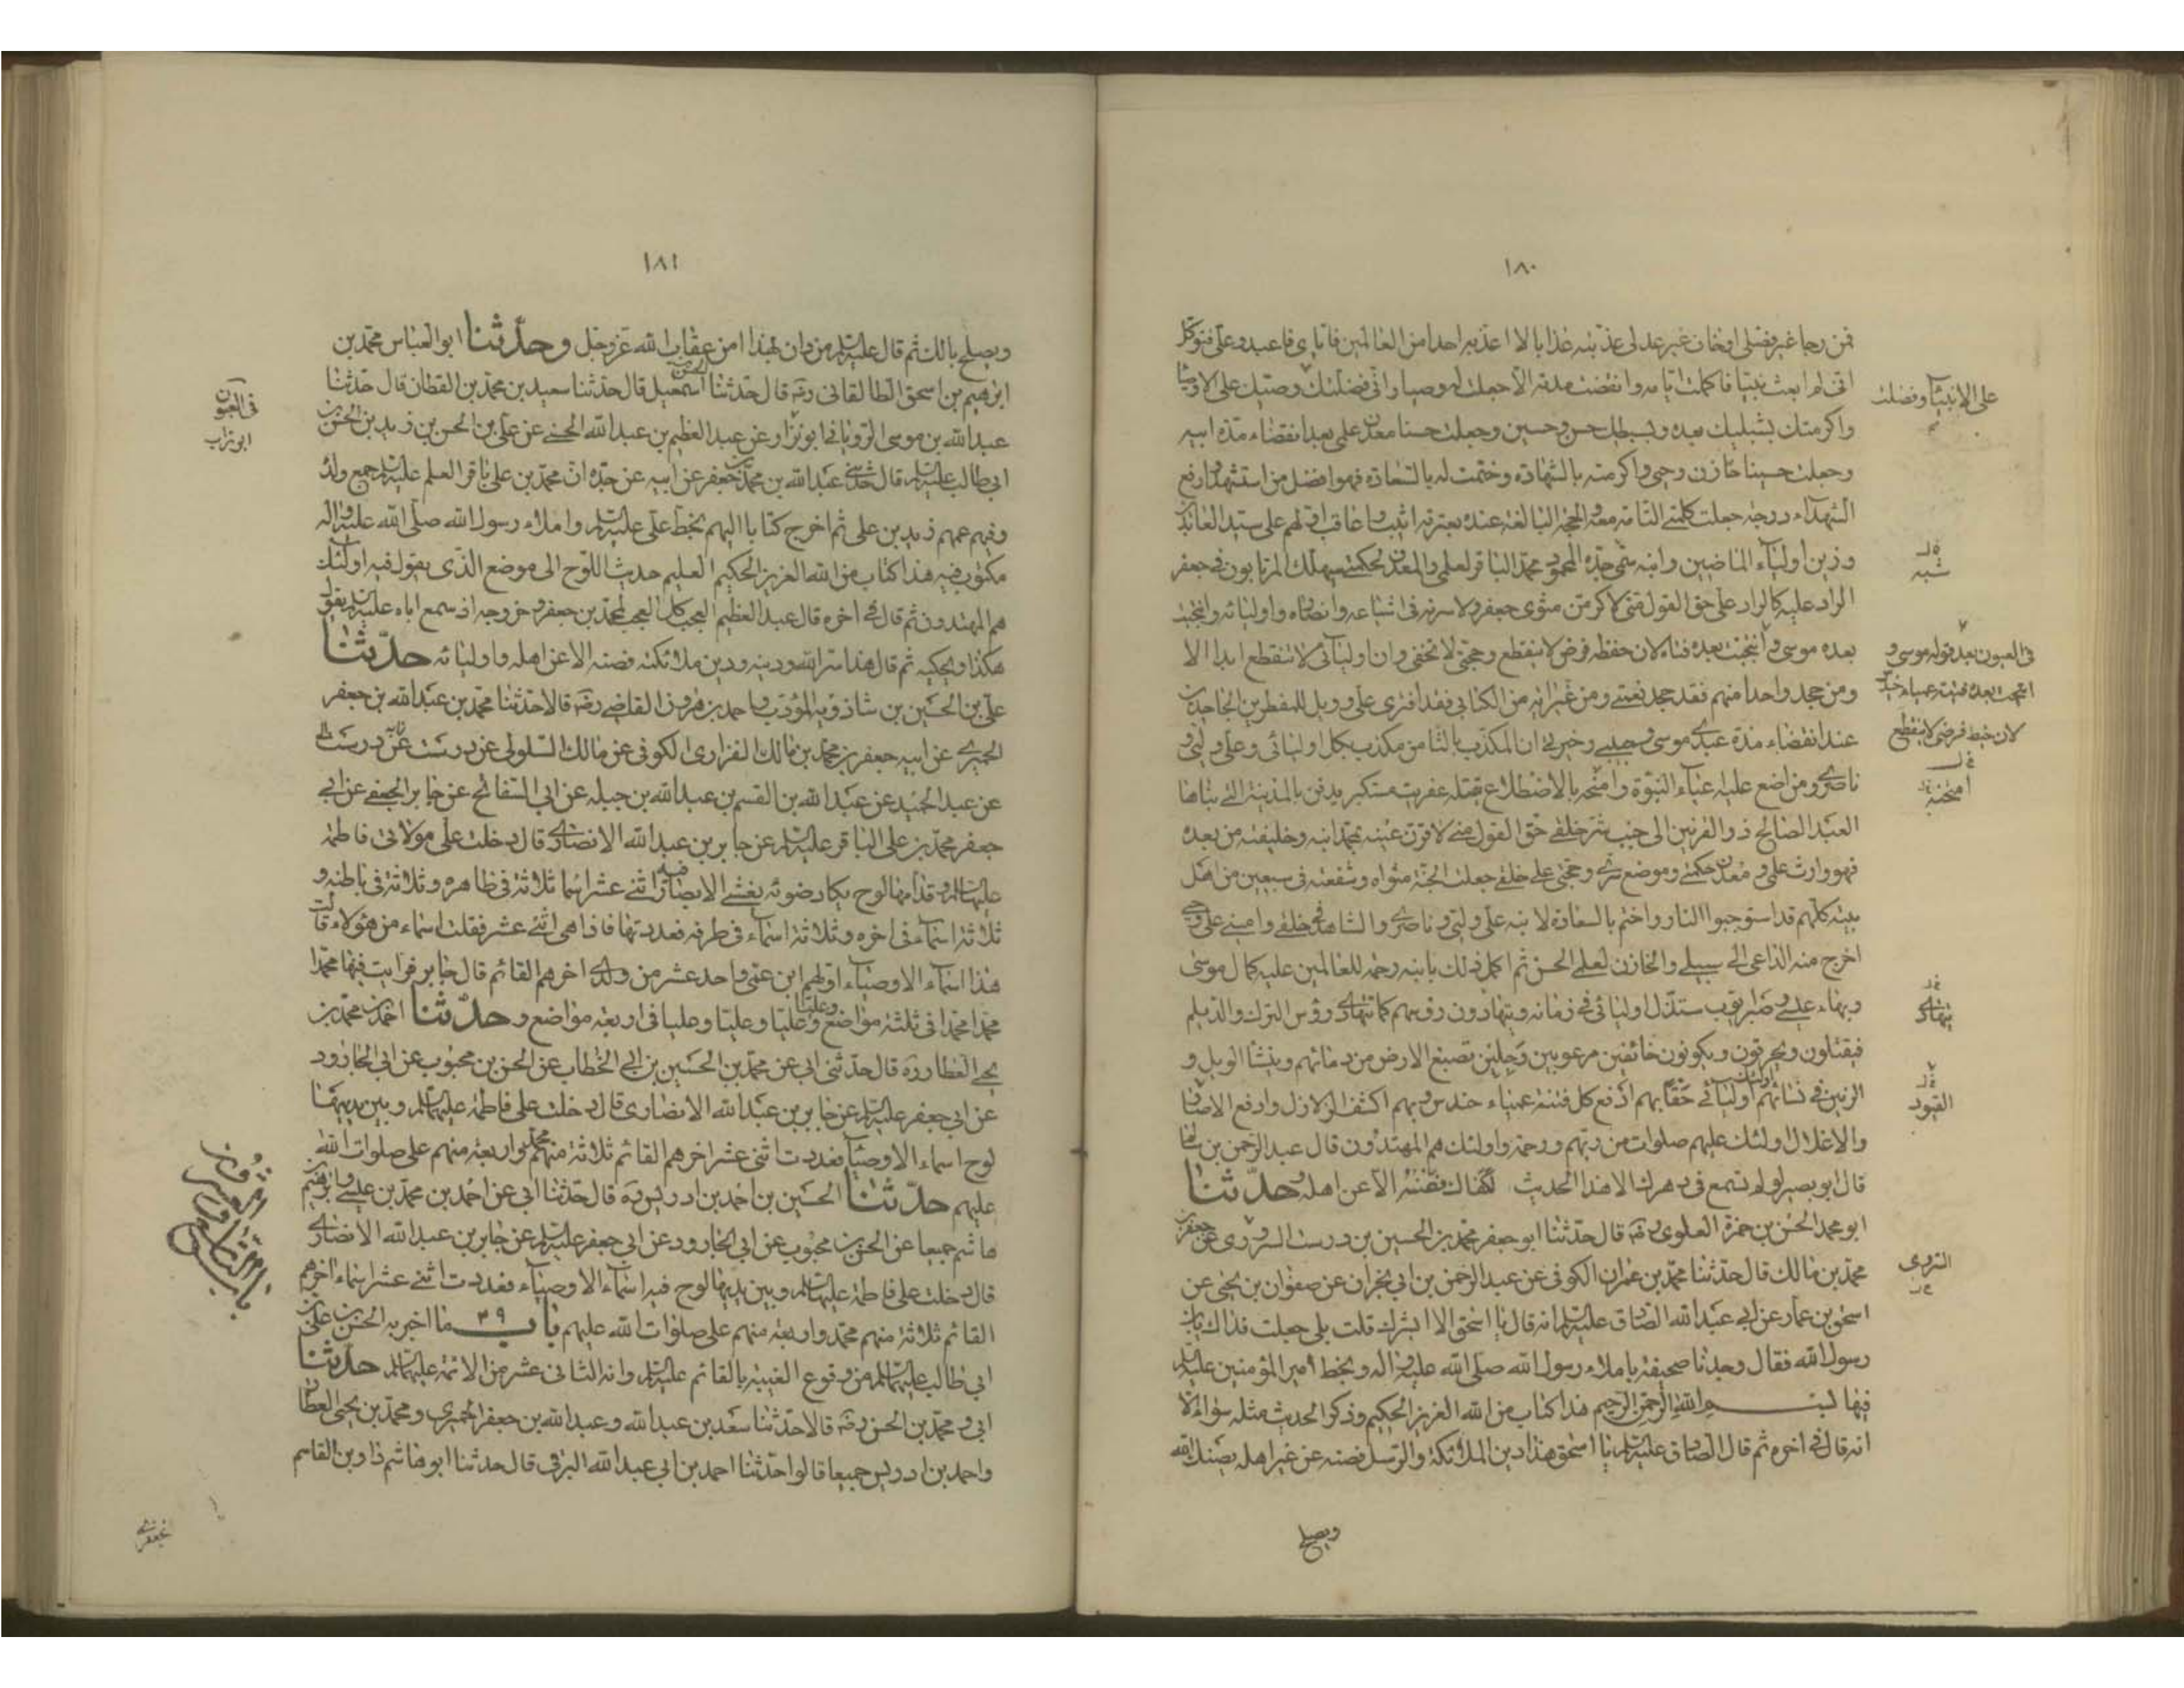 ١٨٠
فمن رجا غير فضلى او خاف غير عدلى عذبته عذابا لا اعذبه احدا من العالمين فاياى فاعبد وعلى فتوكل
انى لم ابعث نبيا فاكملت ايامه وانقضت مدته الا جعلت له وصيا وانى فضلتك وصيك على الاوصيا
على الانبيآء وفضلت
واكرمتك بشبليك بعده وبسبطيك حسن وحسين وجعلت حسنا معدن علمى بعد انقضاء مدة ابيه
وجعلت حسينا خازن وحيى واكرمته بالشهادة وختمت له بالسعادة فهو افضل من استشهد وارفع
الشهدآء درجة جعلت كلمتى التامة معه والحجة البالغة عنده بعترته اثيب واعاقب اولهم على سيد العابدين
وزين اولياء الماضين وابنه سمى جده المحمود محمد الباقر لعلمى والمعدن لحكمتى سيهلك المرتابون فى جعفر
شبه
الراد عليه كالراد على حق القول منى لاكرمن مثوى جعفر ولاسرنه فى اشياعه وانصاره واوليائه وانتجبت
بعده موسى وانتجبت بعده فتاه لان حفظه فرض لا ينقطع وحجتى لا تخفى وان اوليآئى لا تنقطع ابدا الا
فى العيون بعد قوله موسى و
انتجبت بعده فتنة عمياء حندس
لان خيط فرضى لا ينقطع
ومن جحد واحدا منهم فقد جحد نعمتى ومن غير اية من كتابى فقد افترى على وويل للمفطرين الجاحدين
عند انقضاء مدة عبدى موسى وحبيبى وخيرتى ان المكذب بالثامن مكذب بكل اوليائى وعلى وليى و
ناصرى ومن اضع عليه عباء النبوة وامنحه بالاضطلاع يقتله عفريت مستكبر يدفن بالمدينة التى بناها
امتحنه
العبد الصالح ذو القرنين الى جنب شر خلقى حق القول منى لاقرن عينه بمحمد ابنه وخليفته من بعده
فهو وارث علمى ومعدن حكمتى وموضع سرى وحجتى على خلقى جعلت الجنة مثواه وشفعته فى سبعين من اهل
بيته كلهم قد استوجبوا النار واختم بالسعادة لابنه على وليى وناصرى والشاهد فى خلقى وامينى على وحيى
اخرج منه الداعى الى سبيلى والخازن لعلمى الحسن ثم اكمل ذلك بابنه رحمة للعالمين عليه كمال موسى
وبهاء عيسى وصبر ايوب ستذل اوليائى فى زمانه ويتهادون رؤسهم كما تتهادى رؤس الترك والديلم
يتهادى
فيقتلون ويحرقون ويكونون خائفين مرعوبين وجلين تصبغ الارض من دمائهم وينشا الويل و
الرنين فى نسائهم اولئك اوليائى حقا بهم ادفع كل فتنة عمياء حندس وبهم اكشف الزلازل وادفع الاصار
القيود
والاغلال اولئك عليهم صلوات من ربهم ورحمة واولئك هم المهتدون قال عبد الرحمن بن سالم
قال ابو بصير لو لم تسمع فى دهرك الا هذا الحديث لكفاك فصنه الا عن اهله وحدثنا
ابو محمد الحسن بن حمزة العلوى رضه قال حدثنا ابو جعفر محمد بن الحسين بن درست السروى عن جعفر بن
محمد بن مالك قال حدثنا محمد بن عمران الكوفى عن عبد الرحمن بن ابى نجران عن صفوان بن يحيى عن
اسحق بن عمار عن ابى عبد الله الصادق عليه السلم انه قال يا اسحق الا ابشرك قلت بلى جعلت فداك يابن
رسول الله فقال وجدنا صحيفة باملاء رسول الله صلى الله عليه واله وبخط امير المؤمنين عليه السلم
فيها بسم الله الرحمن الرحيم هذا كتاب من الله العزيز الحكيم وذكر الحديث مثله سواء الا
انه قال فى اخره ثم قال الصادق عليه السلم يا اسحق هذا دين الملائكة والرسل فصنه عن غير اهله يصنك الله
ويصلح
١٨١
ويصلح بالك ثم قال عليه السلم من دان بهذا امن عقاب الله عز وجل وحدثنا ابو العباس محمد بن
ابرهيم بن اسحق الطالقانى رضه قال حدثنا الحسن اسمعيل قال حدثنا سعيد بن محمد بن القطان قال حدثنا
فى العيون
ابو تراب
عبد الله بن موسى الرويانى ابو تراب عن عبد العظيم بن عبد الله الحسنى عن على بن الحسن بن زيد بن الحسن بن
ابى طالب عليه السلم قال حدثنى عبد الله بن محمد بن جعفر عن ابيه عن جده ان محمد بن على باقر العلم عليه السلم جمع ولده
وفيهم عمهم زيد بن على ثم اخرج كتابا اليهم بخط على عليه السلم واملاء رسول الله صلى الله عليه واله
مكتوب فيه هذا كتاب من الله العزيز الحكيم العليم حديث اللوح الى موضع الذى يقول فيه اولئك
هم المهتدون ثم قال فى اخره قال عبد العظيم العجب كل العجب لمحمد بن جعفر وخروجه اذ سمع اباه عليه السلم يقول
هكذا ويحكيه ثم قال هذا سر الله ودينه ودين ملائكته فصنه الا عن اهله واوليائه حدثنا
على بن الحسين بن شاذويه المؤدب واحمد بن هرون القاضى رضه قالا حدثنا محمد بن عبد الله بن جعفر
الحميرى عن ابيه جعفر بن محمد بن مالك الفزارى الكوفى عن مالك السلولى عن درست
عن عبد الحميد عن عبد الله بن القسم بن عبد الله بن جبله عن ابى السفاتج عن جابر الجعفى عن ابى
جعفر محمد بن على الباقر عليه السلم عن جابر بن عبد الله الانصارى قال دخلت على مولاتى فاطمة
عليها السلم وقدامها لوح يكاد ضوئه يغشى الابصار فيه اثنى عشر اسما ثلاثة فى ظاهره وثلاثة فى باطنه و
ثلاثة اسمآء فى اخره وثلاثة اسمآء فى طرفه فعددتها فاذا هى اثنى عشر فقلت اسماء من هؤلاء قالت
هذا اسمآء الاوصيآء اولهم ابن عمى واحد عشر من ولدى اخرهم القائم قال جابر فرايت فيها محمدا
محمدا محمدا فى ثلثة مواضع وعليا وعليا وعليا وعليا فى اربعة مواضع وحدثنا احمد بن محمد بن
يحيى العطار ره قال حدثنى ابى عن محمد بن الحسين بن ابى الخطاب عن الحسن بن محبوب عن ابى الجارود
عن ابى جعفر عليه السلم عن جابر بن عبد الله الانصارى قال دخلت على فاطمة عليها السلم وبين يديها
لوح اسماء الاوصيآء فعددت اثنى عشر اخرهم القائم ثلاثة منهم محمد واربعة منهم على صلوات الله
عليهم حدثنا الحسين بن احمد بن ادريس ره قال حدثنا ابى عن احمد بن محمد بن عيسى وابرهيم بن
هاشم جميعا عن الحسن بن محبوب عن ابى الجارود عن ابى جعفر عليه السلم عن جابر بن عبد الله الانصارى
قال دخلت على فاطمة عليها السلم وبين يديها لوح فيه اسمآء الاوصيآء فعددت اثنى عشر اسماء اخرهم
القائم ثلاثة منهم محمد واربعة منهم على صلوات الله عليهم باب ٢٩ ما اخبر به الحسن بن على بن
ابى طالب عليهما السلم من وقوع الغيبة بالقائم عليه السلم وانه الثانى عشر من الائمة عليهم السلم حدثنا
ابى ومحمد بن الحسن رضه قالا حدثنا سعد بن عبد الله وعبد الله بن جعفر الحميرى ومحمد بن يحيى العطار
واحمد بن ادريس جميعا قالوا حدثنا احمد بن ابى عبد الله البرقى قال حدثنا ابو هاشم داود بن القاسم